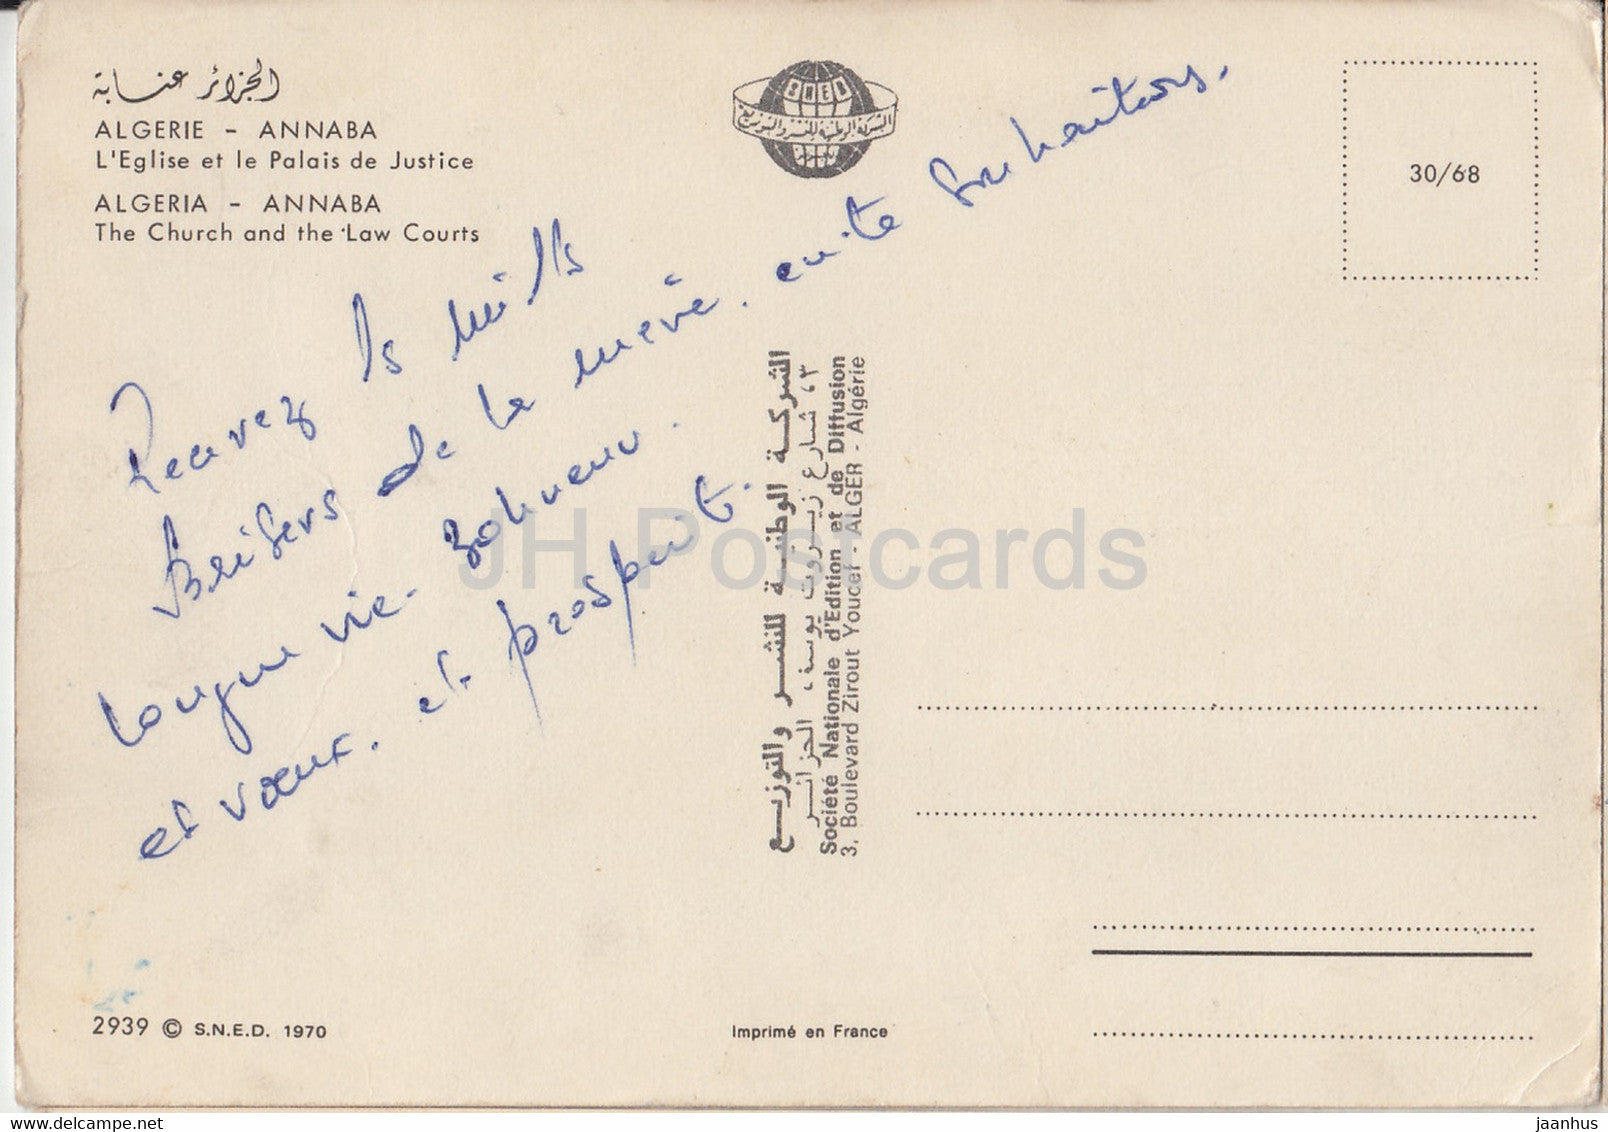 الجزائر عنابة
ALGERIE - ANNABA
L'Eglise et le Palais de Justice
ALGERIA - ANNABA
The Church and the Law Courts
SNED
الشركة الوطنية للنشر والتوزيع
30/68
Recevez les mills
Beisers de la mère. ensite souhaitons.
longue vie. Bohneur.
et vœux. et prosperit.
الشركة الوطنية للنشر والتوزيع
٣، شارع زيروت يوسف، الجزائر
Société Nationale d'Edition et de Diffusion
3, Boulevard Zirout Youcef - ALGER - Algérie
JH Postcards
2939 © S.N.E.D. 1970
Imprimé en France
delcampe.net
jaanhus